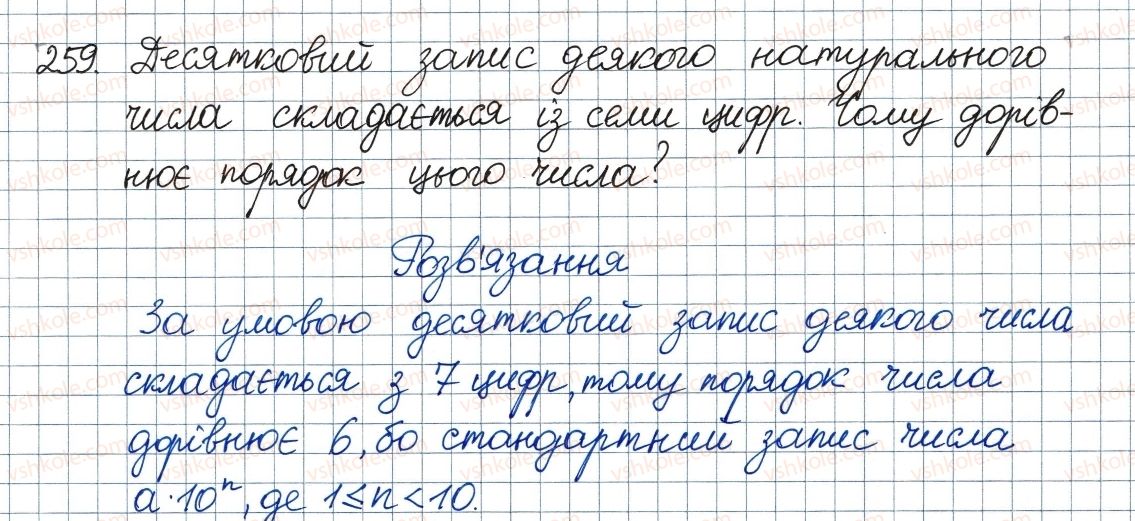 259. Десятковий запис деякого натурального
числа складається із семи цифр. Чому дорів-
нює порядок цього числа?
Розв'язання
За умовою десятковий запис деякого числа
складається з 7 цифр, тому порядок числа
дорівнює 6, бо стандартний запис числа
a·10ⁿ, де 1≤n<10.